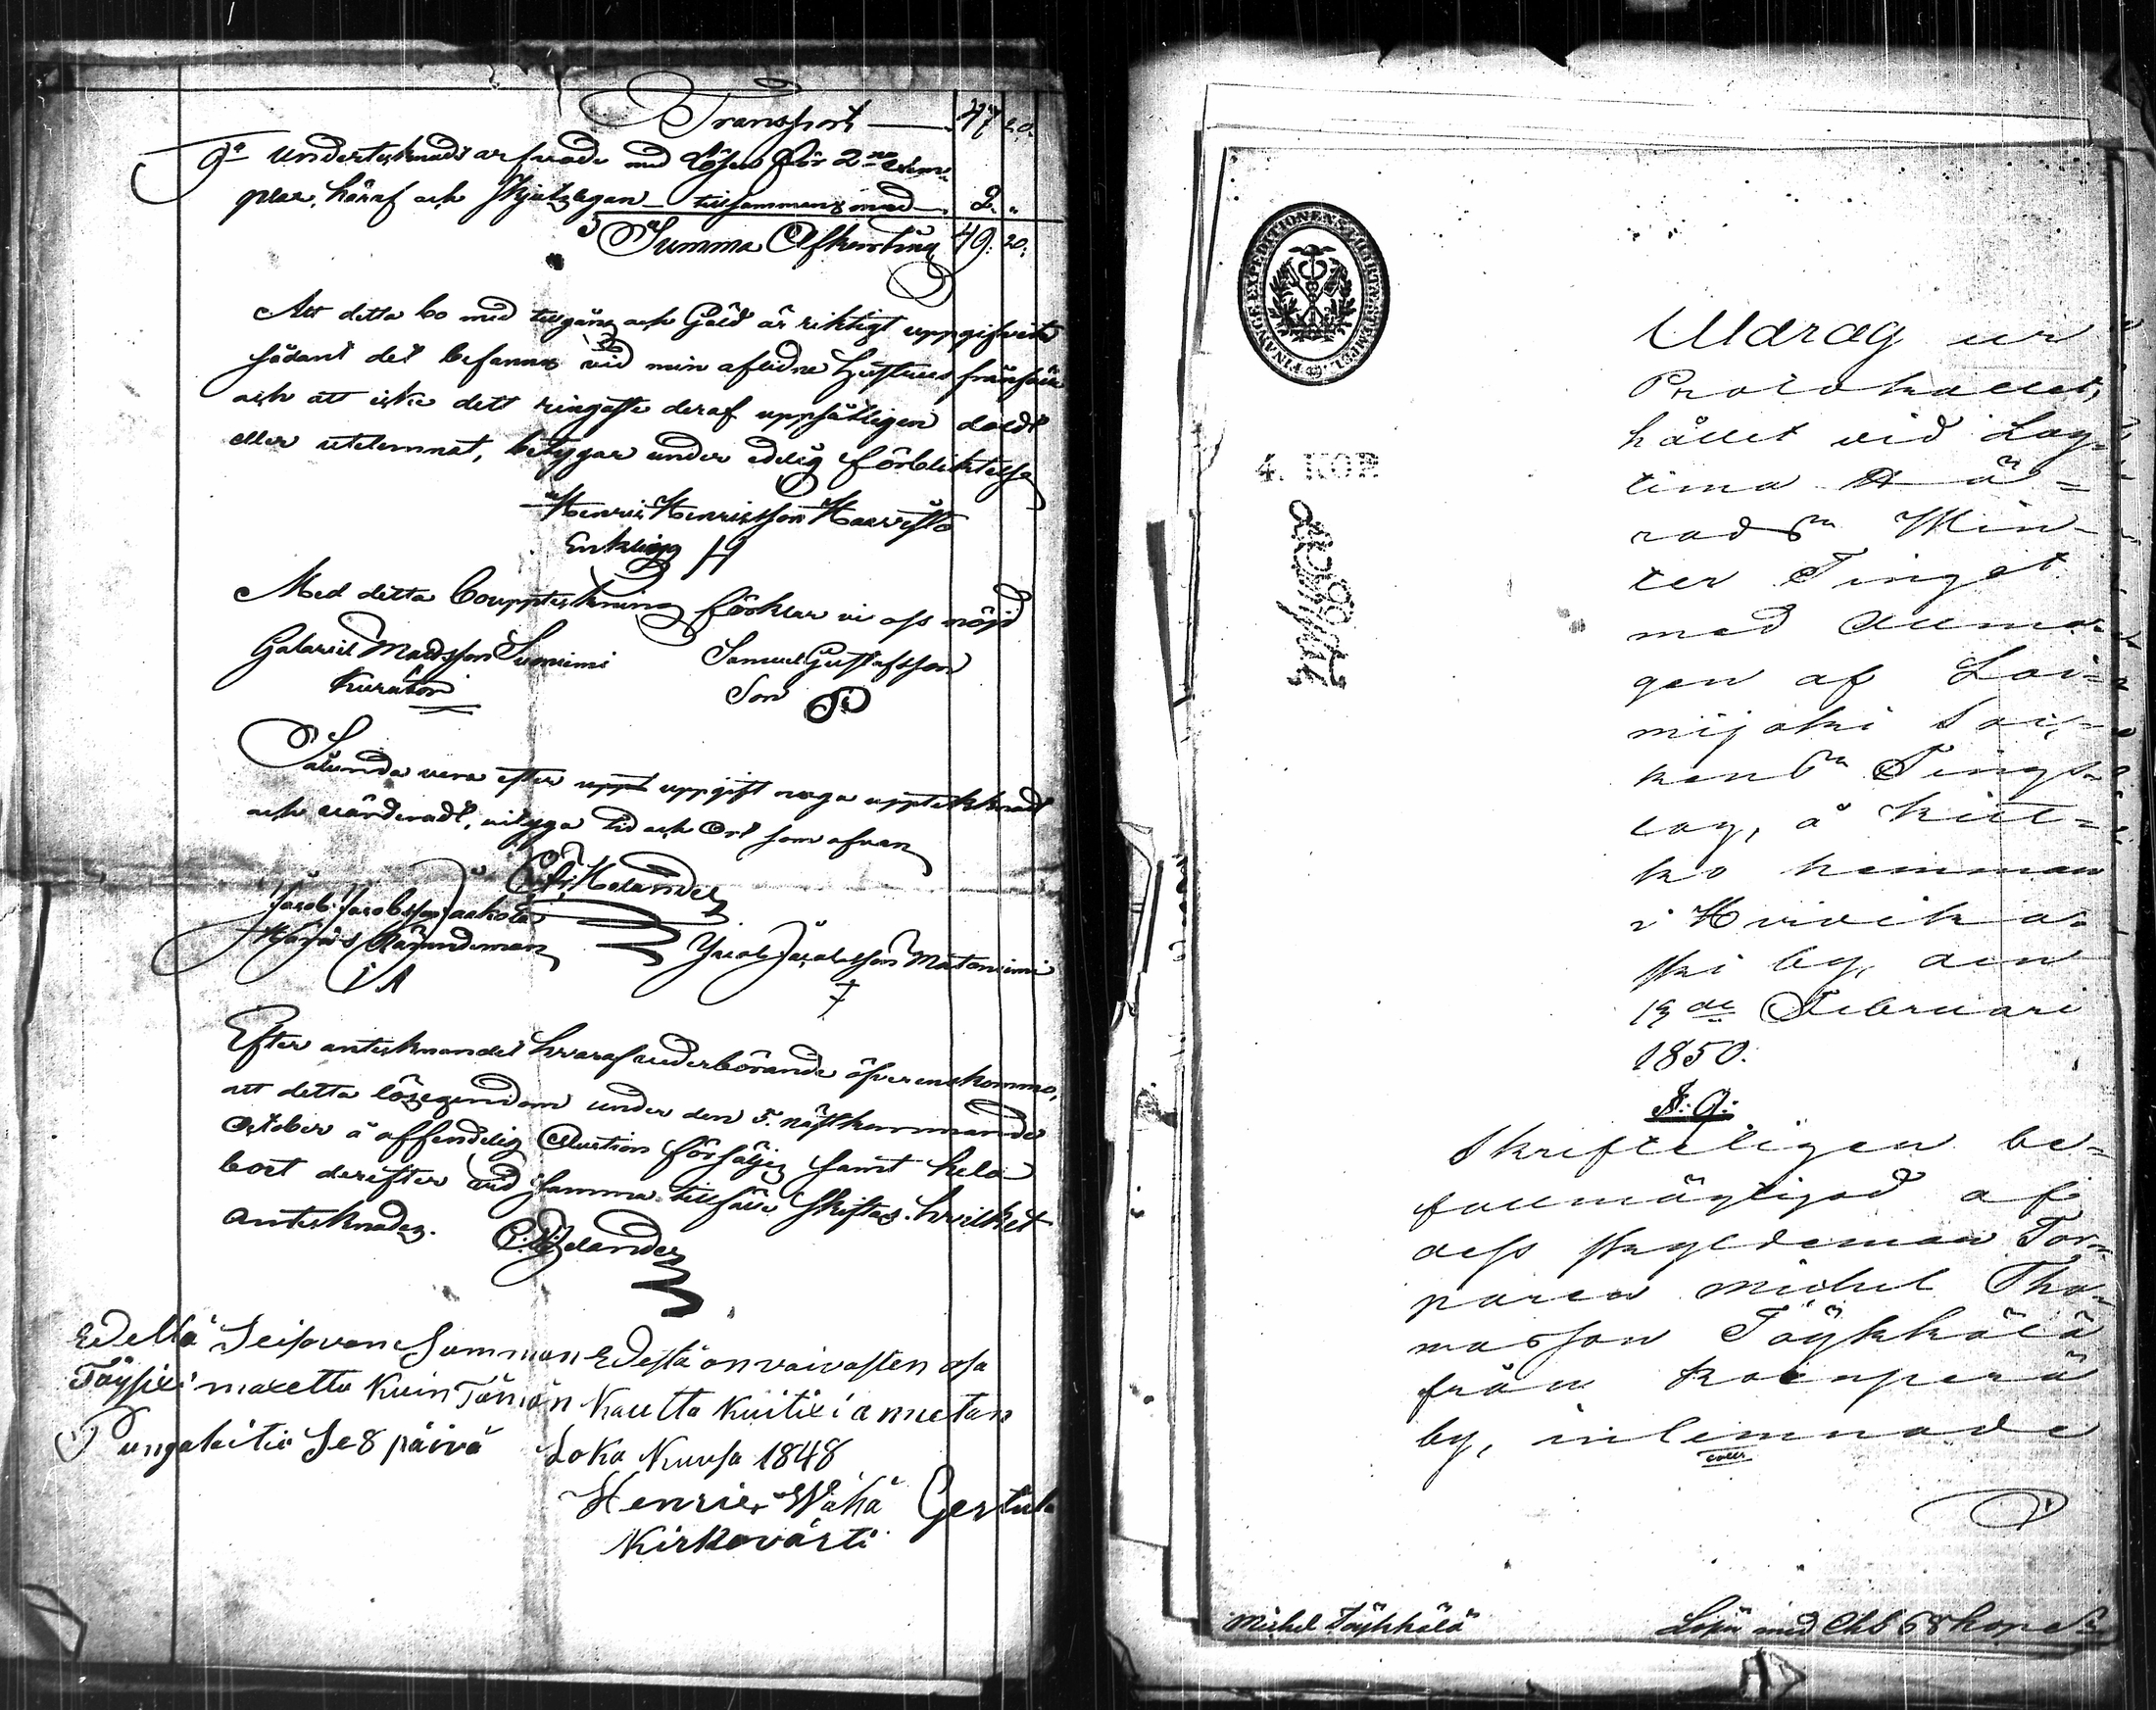 Transport 47 20.
9o Undertecknads arfvode med Lösen för 2ne Exem-
plar häraf och Skjutzlegan tillsammans med 2. "
Summa Afkortning 49. 20.
Att detta bo med tillgång och Gäld är riktigt uppgifvit
sådant det befanns vid min aflidne Hustrus frånfälle
och att icke dett ringaste deraf uppsåtligen doldt
eller utelemnat, betygar under edelig förbliktelse
Henric Henricsson Harvisto
Enkling
Med detta bouppteckning förklar vi oss nöjd
Gabariel Madsson Suoniemi Samuel Gustafsson
Kurator Son
Sålunda vara efter uppt uppgift noga upptecknadt
och värderadt, vityga tid och Ort som ofvan
C. Helander
Jacob Jacobsson Jaakola
Härads Nämndeman Jacob Jacobsson Mataniemi
Efter antecknandet hvaraf vederbörande öfverenskommo,
att detta lösegendom under den 5. nästkommande
October å offendelig Auction försäljes samt hela
boet derefter vid samma tillfälle skiftas. hvilket
antecknades. C. Helander
Edellä Seisovan Summan Edestä on vaivasten osa
Täysixi maxettu Kuin Tämän Kautta Kuitixi annetan
Pungalaitio Se 8 päivä Loka Kuusa 1848
Henric Wähä Gertula
Kirkovärti
FINANCE EXPEDITIONENS CHARTÆ STEMPEL
4. KOP.
Utdrag ur
Protokollet,
hållet vid Lag-
tima Hä-
radsn Win-
ter Tinget
med Allmo-
gen af Loi-
mijoki Soc-
kens Tings-
lag, å Kul-
ko hemman
i Hirvikos-
ki by, den
19de Februari
1850.
Skrifteligen be-
fullmägtigad af
dess skyldeman Tor-
paren Michel Tho-
masson Töykkälä
från Koenperä
by, inlemnade
Michel Töykkälä Lösen med Chs 68 kop. Sr